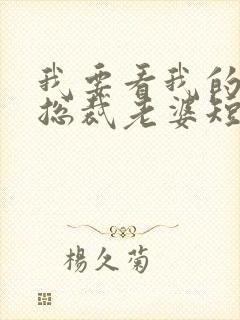 我要看我的
总裁老婆短
楊久菊